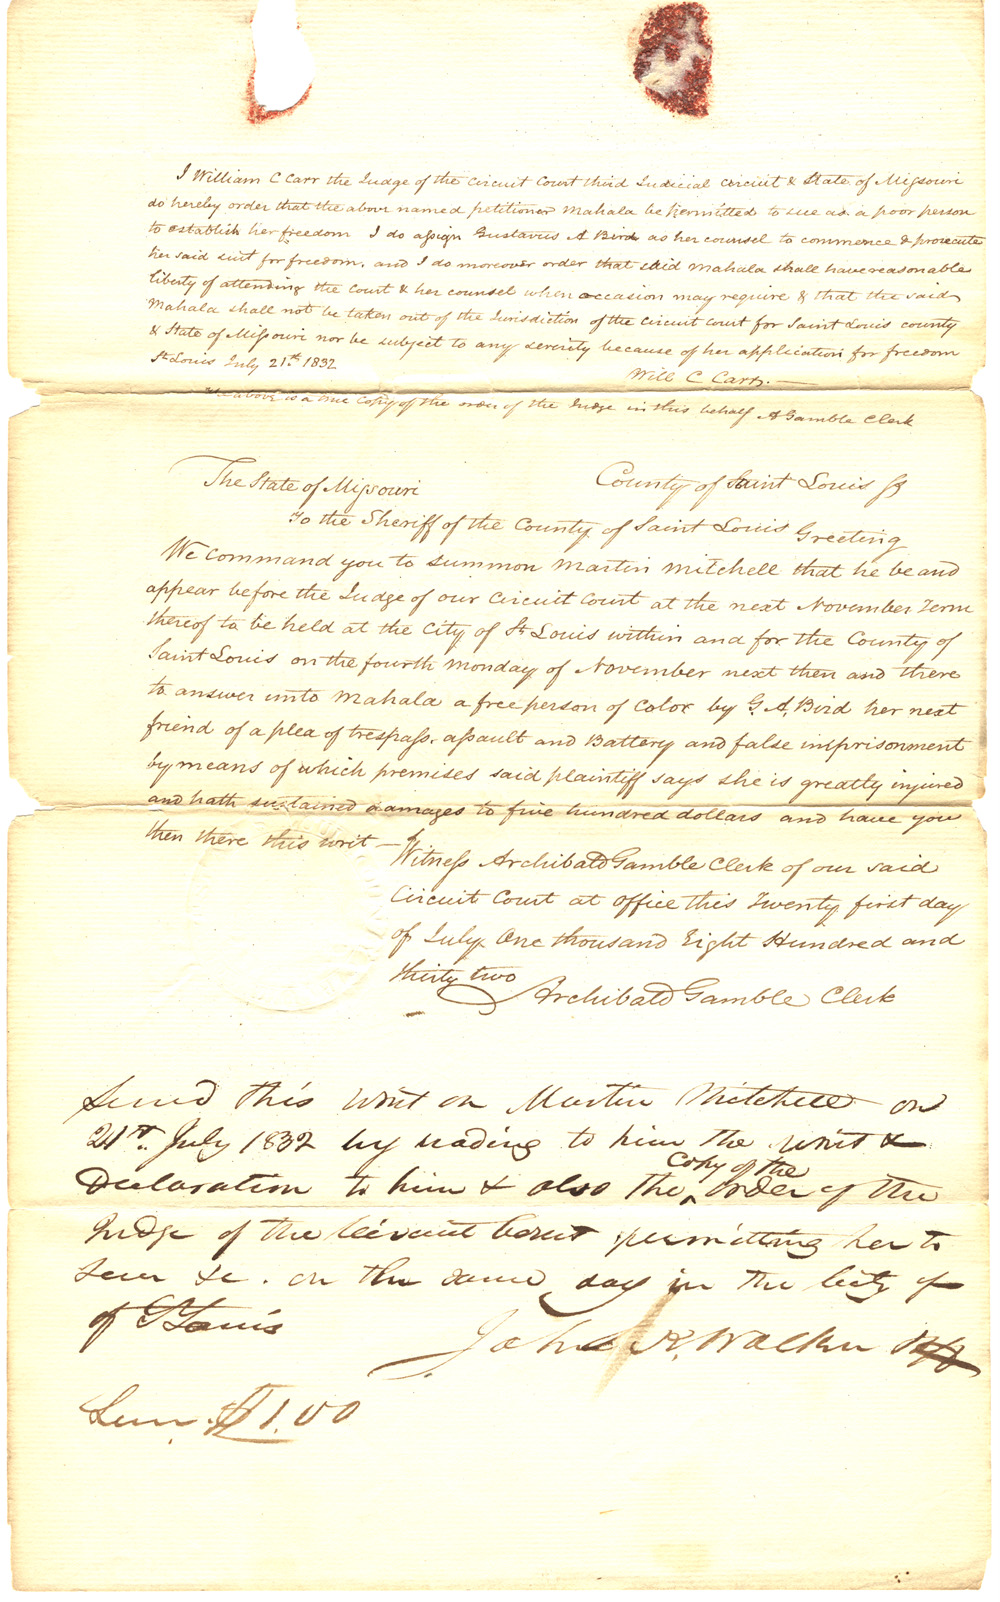 I William C Carr the Judge of the Circuit Court third Judicial circuit & State of Missouri
do hereby order that the above named petitioner Mahala be permitted to sue as a poor person
to establish her freedom I do assign Gustavus A Bird as her counsel to commence & prosecute
her said suit for freedom. and I do moreover order that said Mahala shall have reasonable
liberty of attending the Court & her counsel when occasion may require & that the said
Mahala shall not be taken out of the Jurisdiction of the Circuit Court for Saint Louis county
& State of Missouri nor be subject to any severity because of her application for freedom
St Louis July 21st 1832
Will C Carr.
The above is a true Copy of the order of the Judge in this behalf A Gamble Clerk
The State of Missouri County of Saint Louis ss
To the Sheriff of the County of Saint Louis Greeting
We command you to summon Martin Mitchell that he be and
appear before the Judge of our Circuit Court at the next November Term
thereof to be held at the City of St Louis within and for the County of
Saint Louis on the fourth Monday of November next then and there
to answer unto Mahala a free person of Color by G. A. Bird her next
friend of a plea of trespass, assault and Battery and false imprisonment
by means of which premises said plaintiff says she is greatly injured
and hath sustained damages to five hundred dollars and have you
then there this writ —
Witness Archibald Gamble Clerk of our said
Circuit Court at office this Twenty first day
of July One thousand Eight Hundred and
thirty two
Archibald Gamble Clerk
Served this writ on Martin Mitchell on
21st July 1832 by reading to him the writ &
Declaration to him & also the copy of the order of the
Judge of the Circuit Court permitting her to
sue &c. on the same day in the City of
of St Louis
John K. Walker Shff
Serv. $1.00